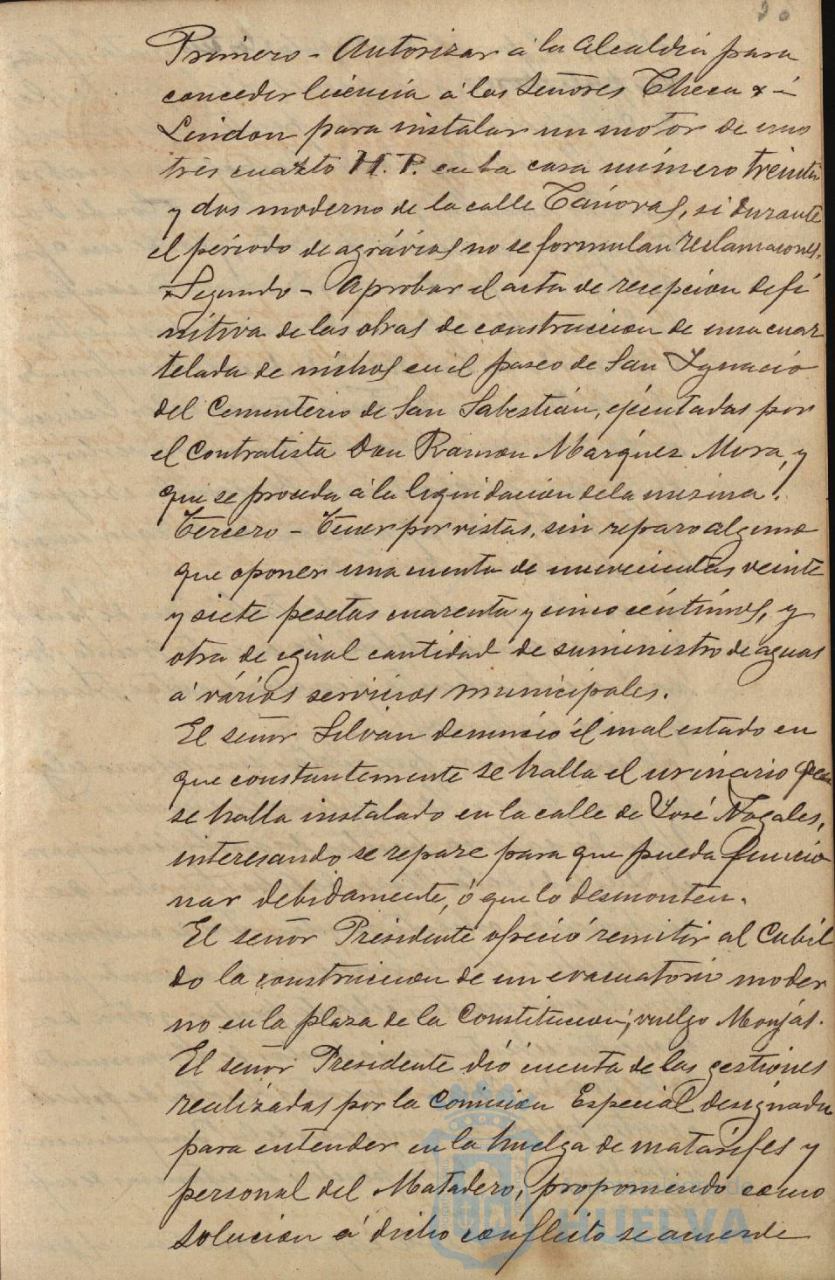 Primero - Autorizar á la Alcaldia para
conceder licencia á los Señores Checa
Lindon para instalar un motor de uno
tres cuarto H. P. en la casa número treinta
y dos moderno de la calle si durante
el período de agrávios no se formulan reclamaciones.
Segundo - Aprobar el acta de recepcion defi
nitiva de las obras de construccion de una cuar
telada de nichos en el paseo de San Ygnacio
del Cementerio de San Sabestián, ejecutadas por
el Contratista Don Ramon Marquez Mora, y
que se proceda á la liquidacion de la misma.
Tercero - Tener por vistas, sin reparo alguno
que oponer una cuenta de nuevecientas veinte
y siete pesetas cuarenta y cinco céntimos, y
otra de igual cantidad de suministro de aguas
á vários servicios municipales.
El señor Silvan denunció el mal estado en
que constantemente se halla el urinario que
se halla instalado en la calle de José Nogales,
interesando se repare para que pueda funcio
nar debidamente, ó que lo desmonten.
El señor Presidente ofreció remitir al Cabil
do la construccion de un evacuatorio moder
no en la plaza de la Constitucion, vulgo Monjas.
El señor Presidente dió cuenta de las gestiones
realizadas por la Comision Especial designada
para entender en la huelga de matarifes y
personal del Matadero, proponiendo como
solucion á dicho conflicto se acuerde
HUELVA